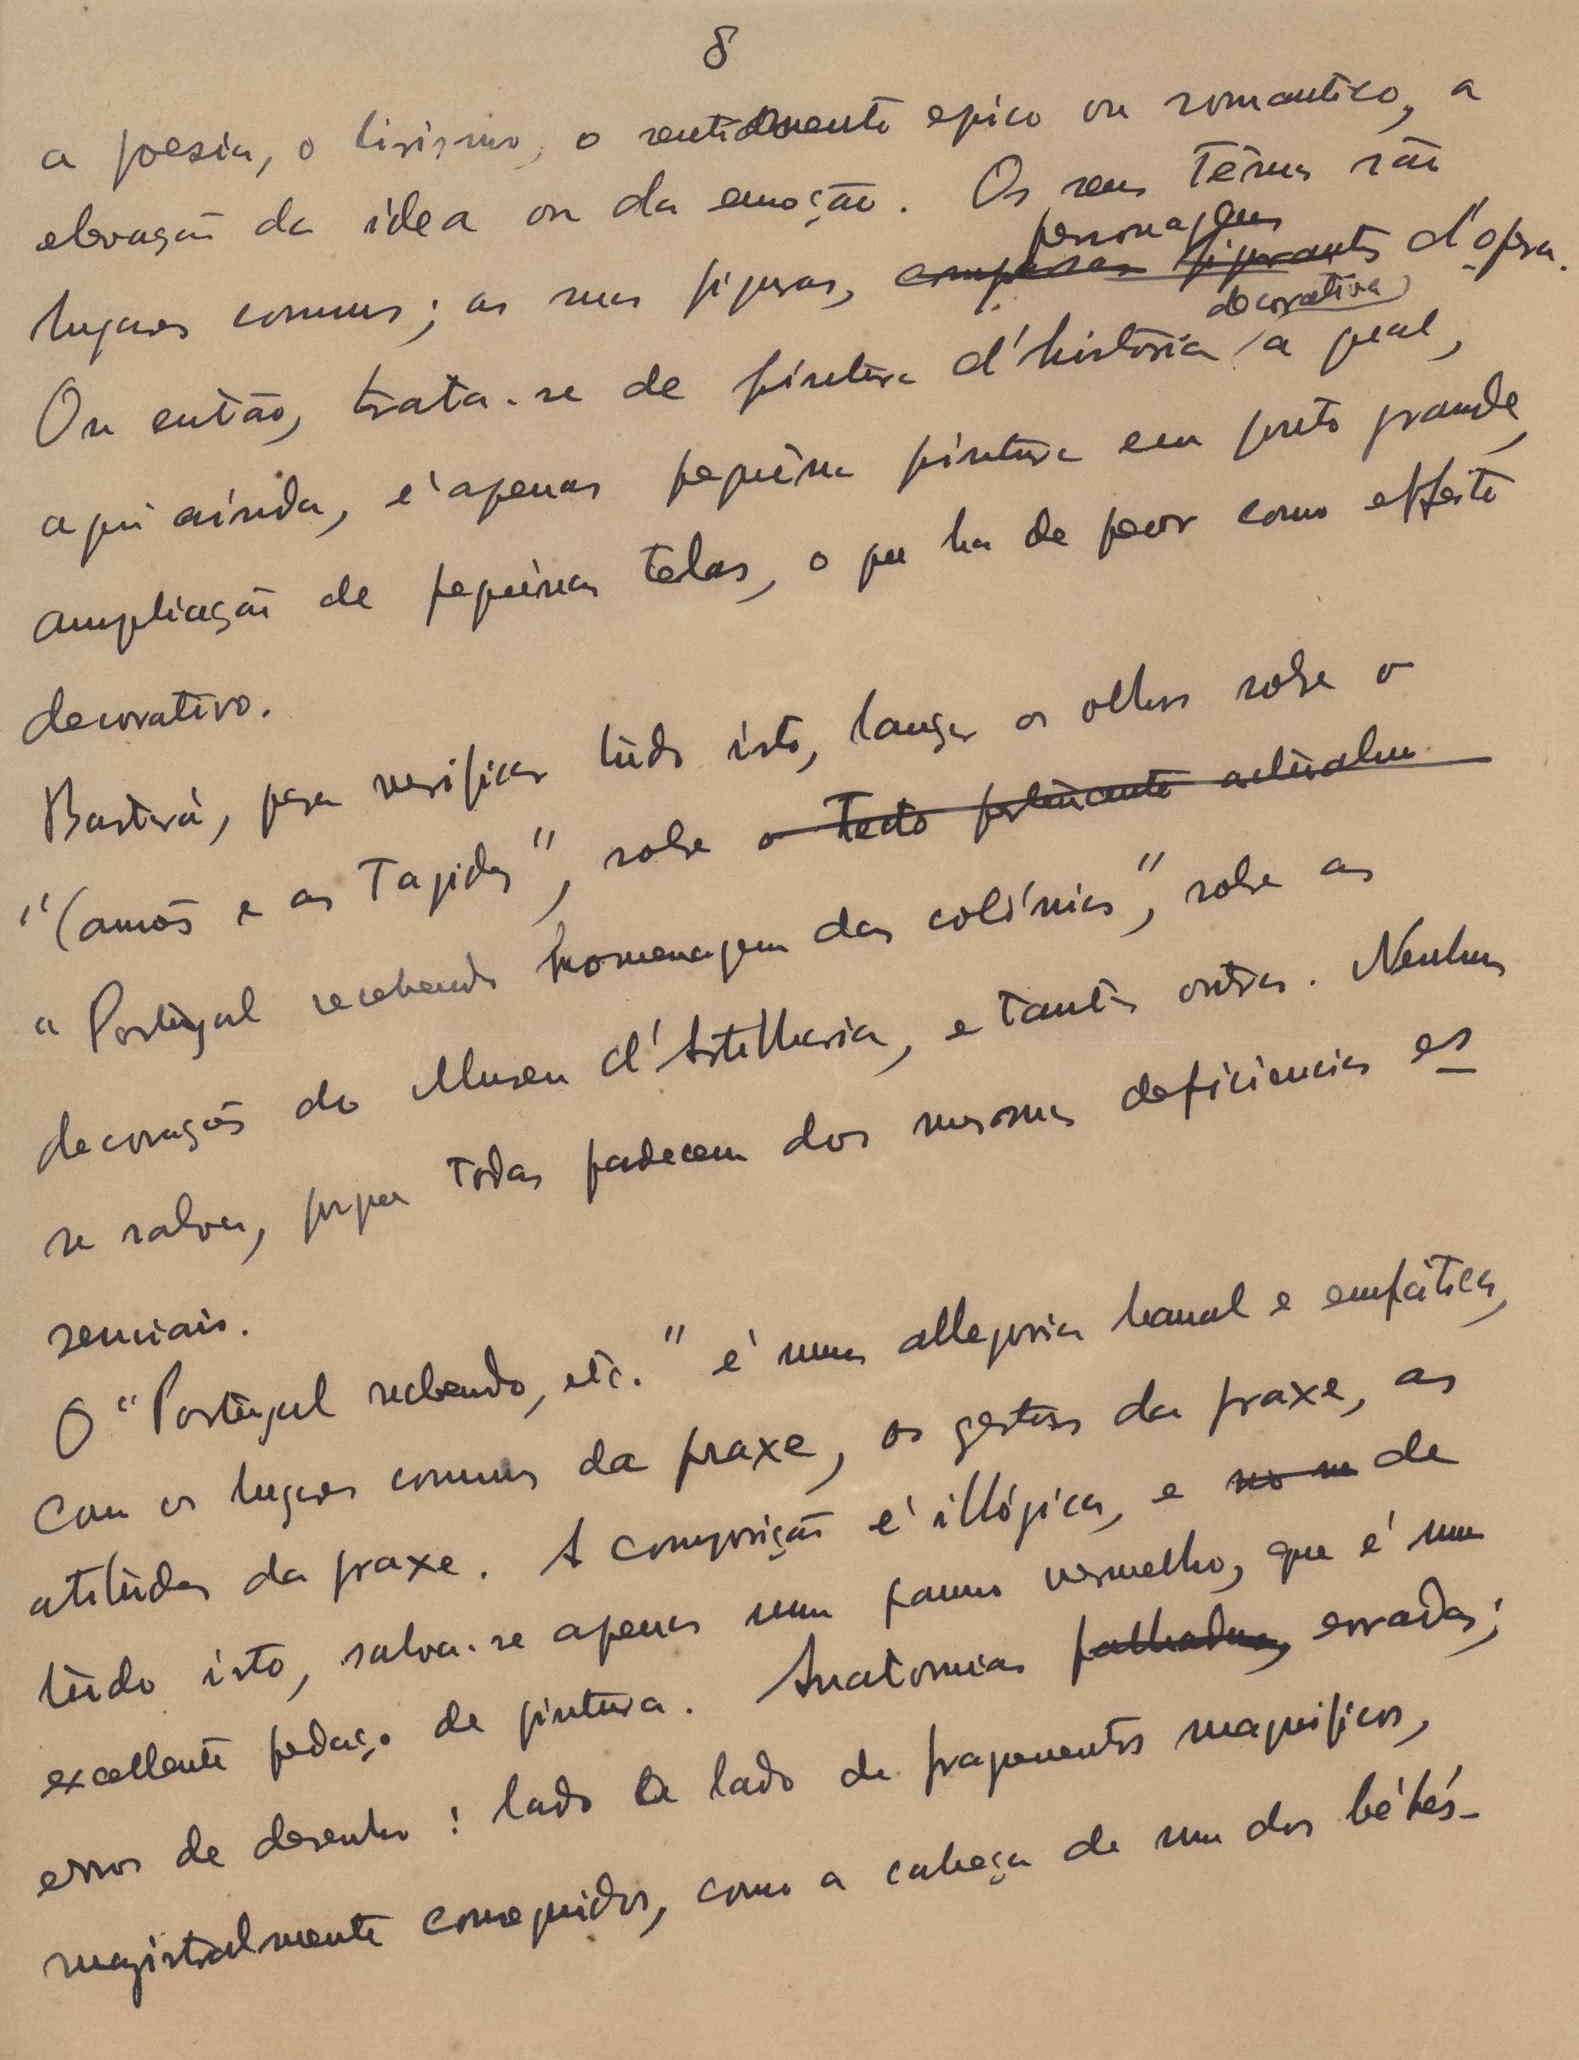 8
a poesia, o lirismo, o sentimento epico ou romantico, a
elevação da idea ou da emoção. Os seus têmas são
personagens
lugares comuns; as suas figuras, comparsas figurantes d'opera.
decorativa
Ou então, trata-se de pintura d'história a qual,
aqui ainda, é apenas pequena pintura em ponto grande,
ampliação de pequenas telas, o que ha de peor como effeito
decorativo.
Bastará, para verificar tudo isto, lançar os olhos sobre o
"Camões e as Tagides", sobre o tecto pertencente actualm
"Portugal recebendo homenagem das colónias", sobre as
decorações do Museu d'Artilharia, e tantas outras. Nenhuma
se salva, porque todas padecem das mesmas deficiencias es
senciais.
O "Portugal recebendo, etc." é uma allegoria banal e emfática,
com os lugares comuns da praxe, os gestos da praxe, as
atitudes da praxe. A composição é illógica, e no m de
tudo isto, salva-se apenas um panno vermelho, que é um
excellente pedaço de pintura. Anatomias falhadas, erradas;
erros de desenho: lado a lado de fragmentos magnificos,
magistralmente conseguidos, como a cabeça de um dos bébés-